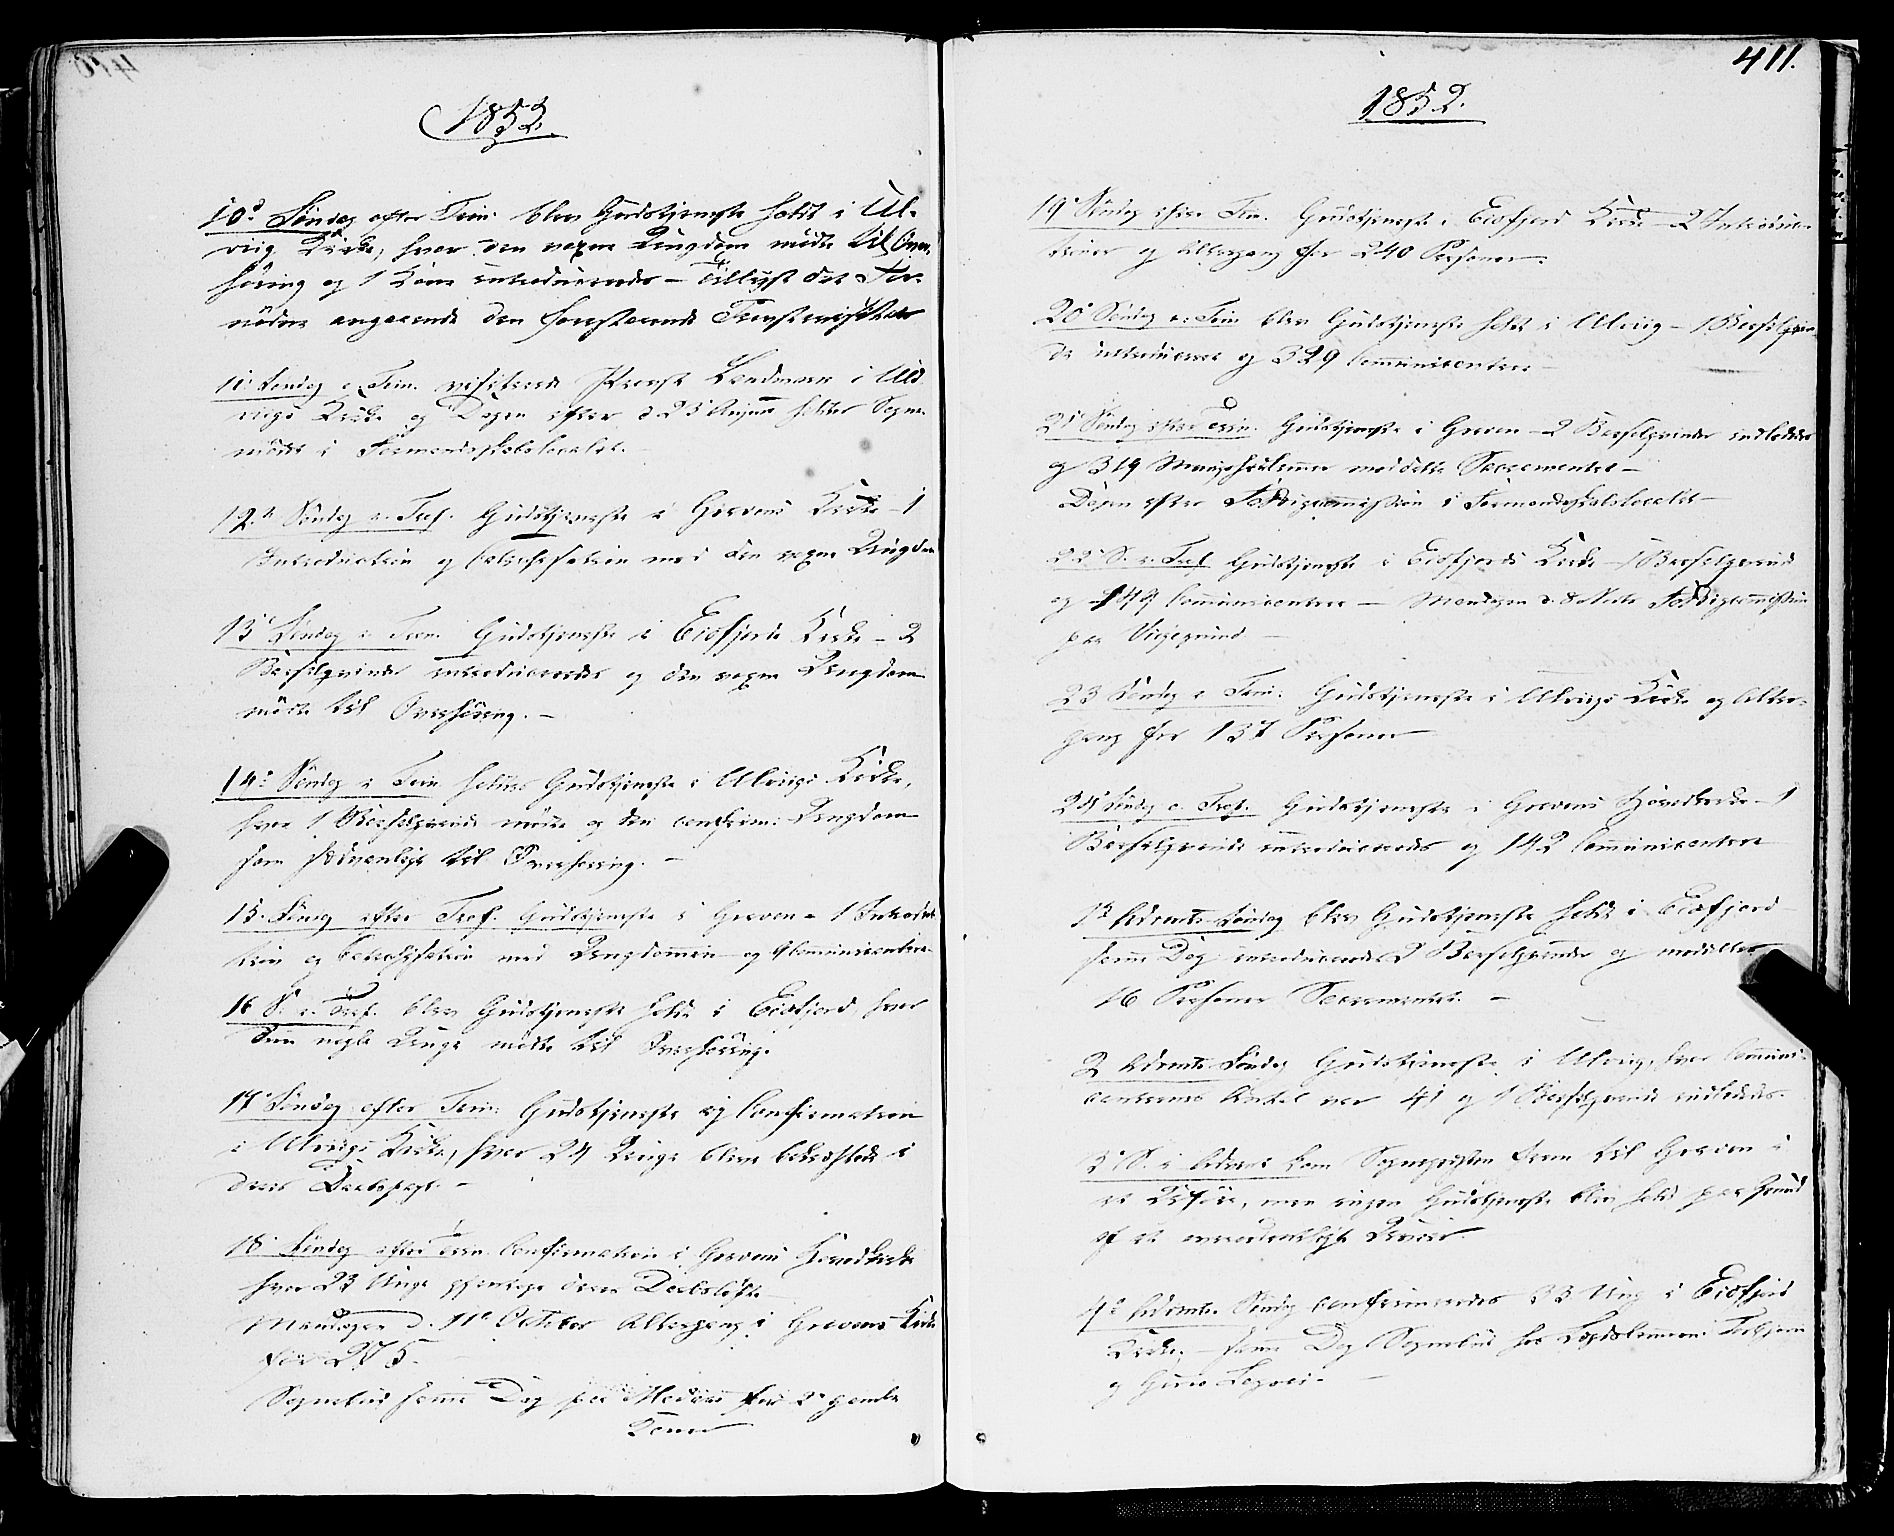 1852.
10de Søndag efter Trin: blev Gudstjeneste holdt i Ul-
vig Kirke, hvor den voxne Ungdom mødte til Over-
høring og 1 Kone introduceredes – Tillyst det For-
nødne angaaende den forestaaende
11te Søndag e. Trin. visiterede Provst Landmark i Ul
vigs Kirke og Dagen efter d 23 August holdtes Sogne-
møde i Formandskabslocalet. –
12te Søndag e. Tref. Gudstjeneste i Gravens Kirke – 1
Introduction og Catechisation med den voxne Ungdom
13de Søndag e. Trin: Gudstjeneste i Eidfjords Kirke – 2
Barselqvinder introduceredes og den voxne Ungdom
mødte til Overhøring. –
14de Søndag e Trin holdtes Gudstjeneste i Ulvigs Kirke,
hvor 1 Barselqvinde mødte og den confirm: Ungdom
som sædvanligt til Overhøring. –
15. Søndag efter Tref. Gudstjeneste i Graven – 1 Introduk
tion og Catechisation med Ungdommen og 9 Communicantere
16 S. e. Tref. blev Gudstjeneste holdt i Eidfjord, hvor
den unge mødte til Overhøring.
17de Søndag efter Trin: Gudstjeneste og Confirmation
i Ulvigs Kirke, hvor 24 Unge bleve bekræftede i
deres Daabspagt. –
18. Søndag efter Trin. Confirmation i Gravens Hovedkirke
hvor 23 Unge gjentoge deres Daabsløfte
Mandagen d. 11te October Altergang i Gravens Kirke
for 275.
Sognebud samme Dag paa for 2de gamle
Koner
411.
1852.
19de Søndag efter Trin. Gudstjeneste i Eidfjord Kirke – 2 Introduc-
tioner og Altergang for 240 Personer.
20de Søndag e. Trin blev Gudstjeneste holdt i Ulvig – 1 Barselqvin-
de introduceret og 329 Communicantere –
21de Søndag efter Trin. Gudstjeneste i Graven – 2 Barselqvinder indledede
og 319 meddelte Sacramentet –
Dagen efter Fattigcommission i Formandskabslocalet –
22de S. e. Tref Gudstjeneste i Eidfjords Kirke – 1 Barselqvinde
og 149 Communicantere – Mandagen d. 8 Novbr Fattigcommission
paa
23 Søndag e Trin: Gudstjeneste i Ulvigs Kirke og Alter-
gang for 137 Personer
24de Søndag e. Tref. Gudstjeneste i Gravens Hovedkirke – 1
Barselqvinde introduceredes og 142 Communicantere
1ste Advents Søndag blev Gudstjeneste holdt i Eidfjord
samme Dag introduceredes 2 Barselqvinder og meddeltes
16 Personer Sacramentet. –
2 Advents Søndag Gudstjeneste i Ulvig, hvor Communi-
canternes Antal var 41 og 1 Barselqvinde indlededes.
3de S. i Advent kom Sognepresten frem til Graven i
et Uføre, men ingen Gudstjeneste blev holdt paa Grund
af et overordentligt Uveir.
4de Advents Søndag confirmeredes 33 Ung i Eidfjord
Kirke. – samme Dag Sognebud hos Torbjørn
og